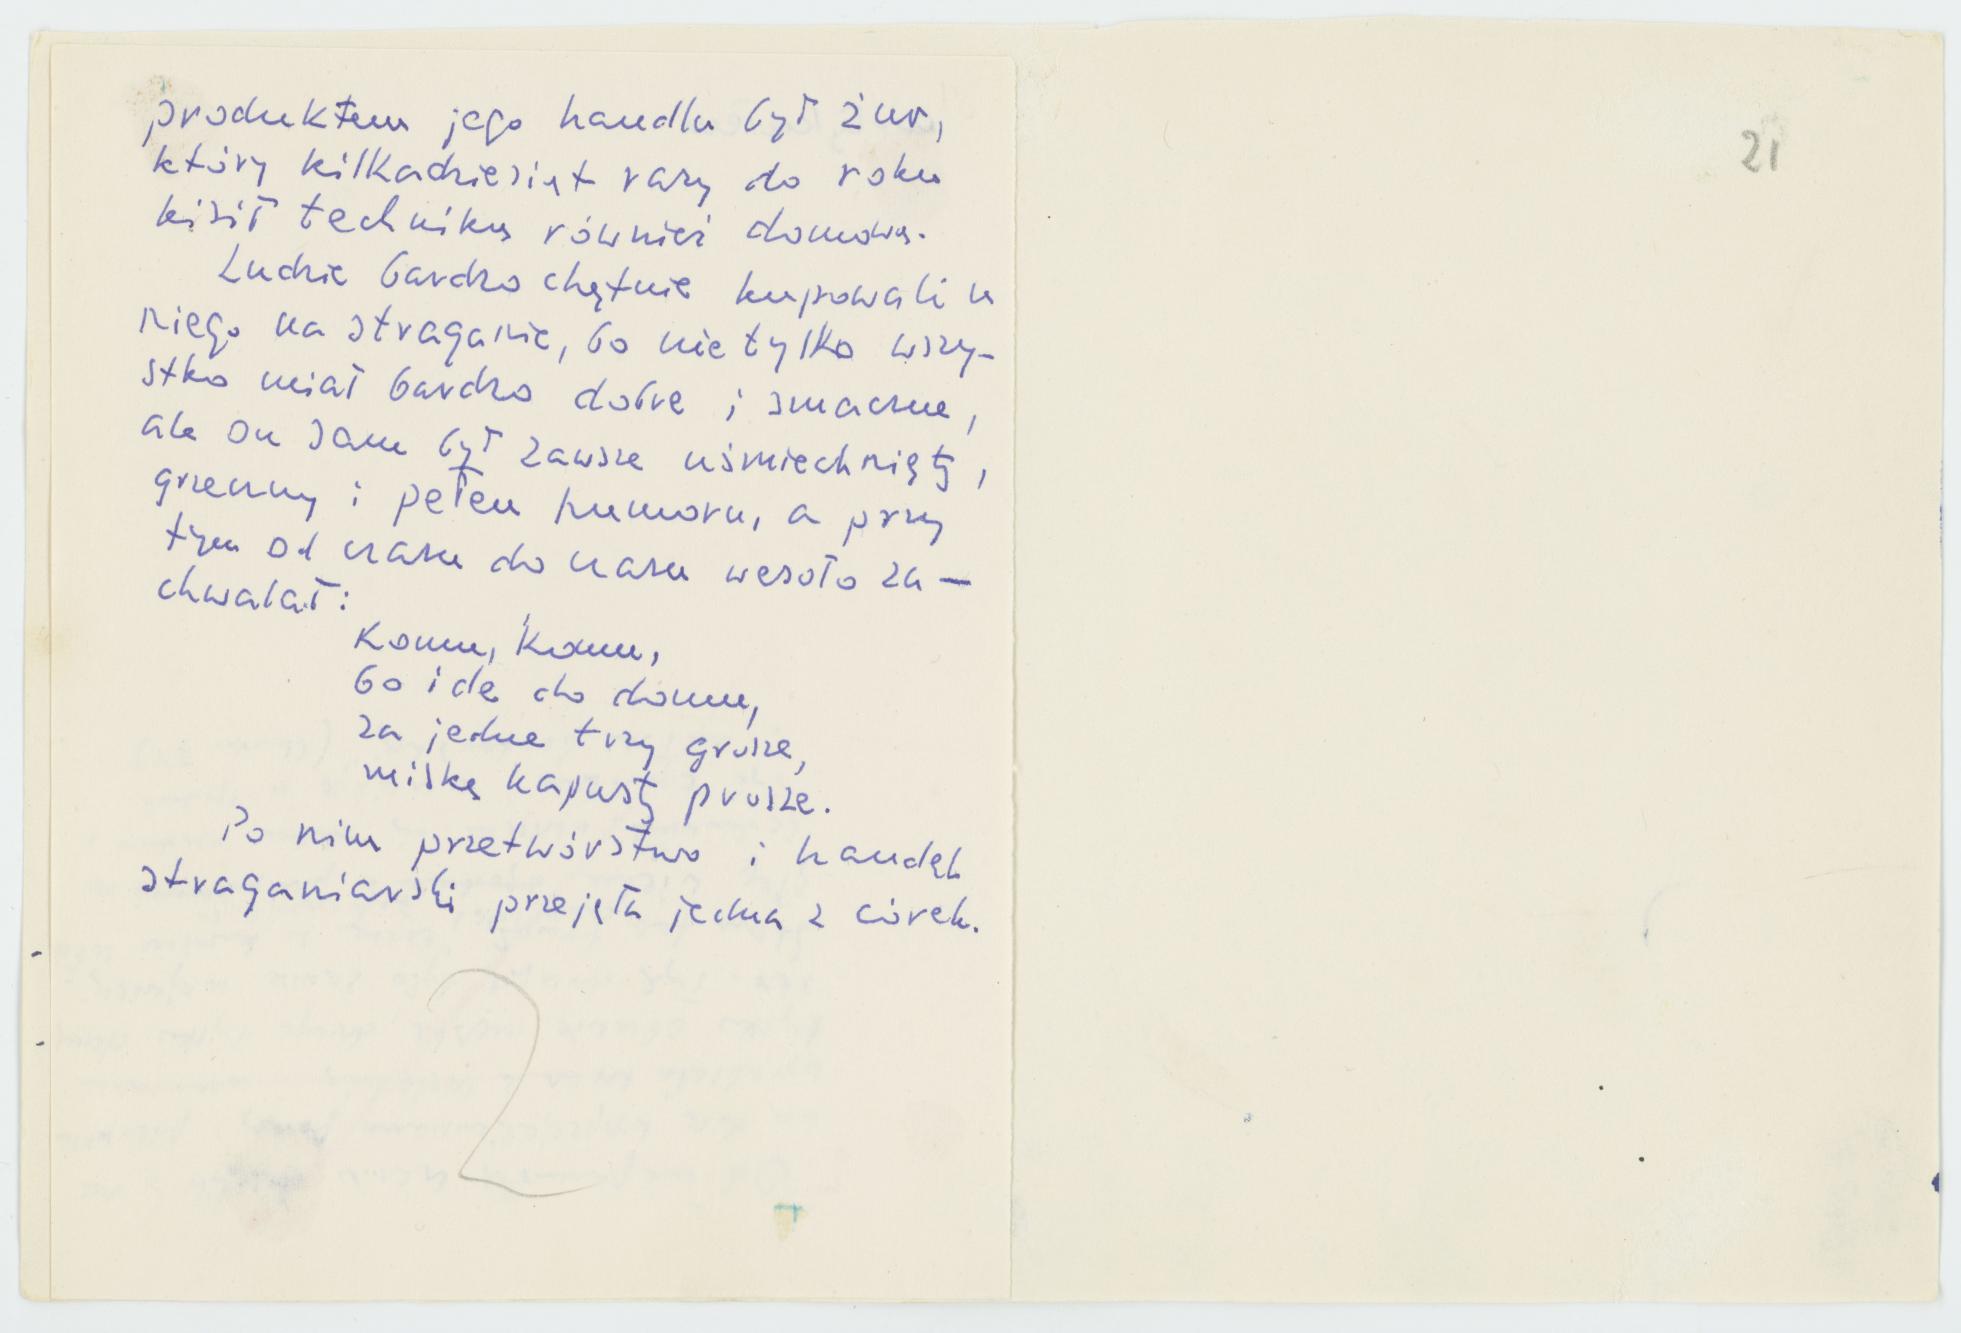 produktem jego handlu był żur,
który kilkadziesiąt razy do roku
kisił techniką również domową.
Ludzie bardzo chętnie kupowali u
niego na straganie, bo nie tylko wszy-
stko miał bardzo dobre i smaczne,
ale on sam był zawsze uśmiechnięty,
grzeczny i pełen humoru, a przy
tym od czasu do czasu wesoło za-
chwalał:
Komu, komu,
bo idę do domu,
za jedne trzy grosze,
miskę kapusty proszę.
Po nim przetwórstwo i handel
straganiarski przejęła jedna z córek.
2
21